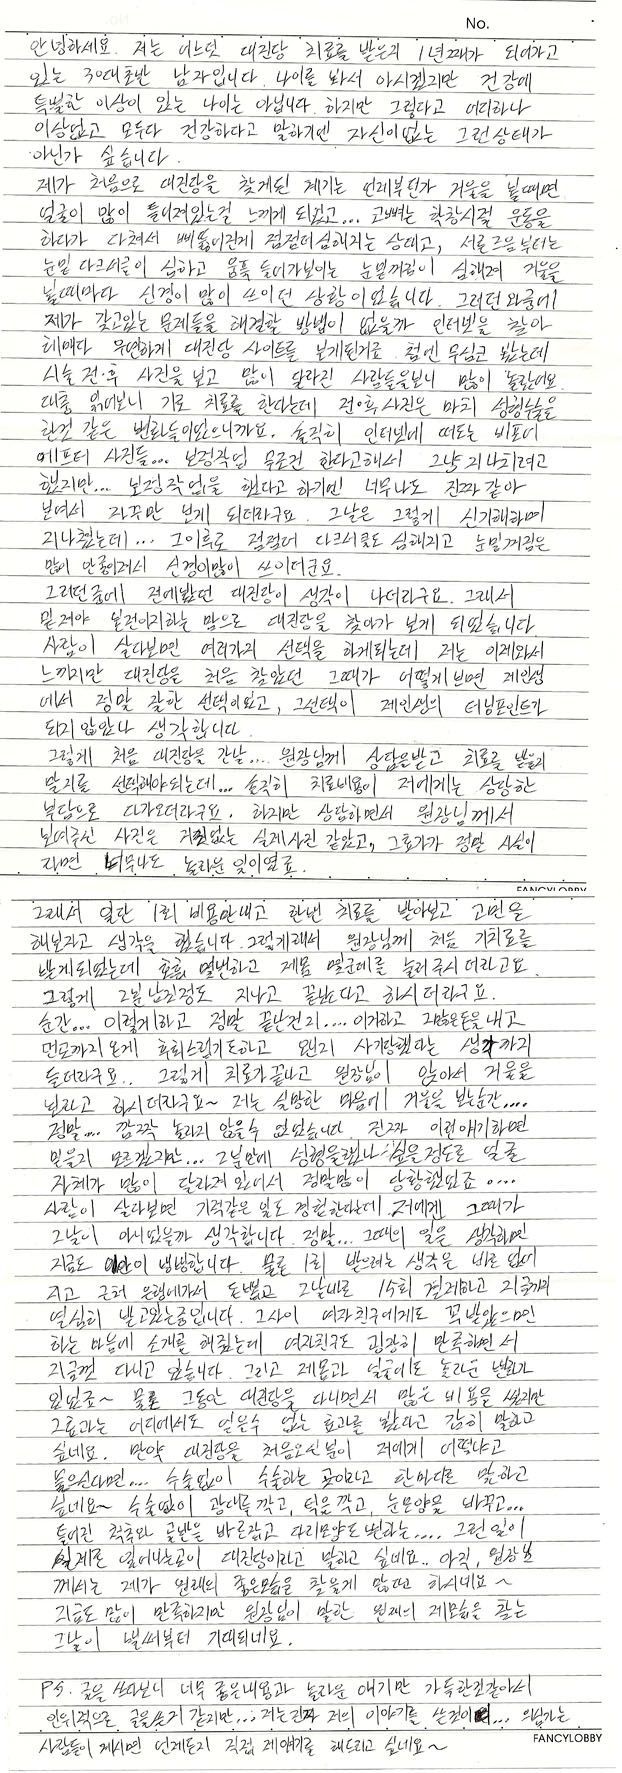 No.
안녕하세요. 저는 어느덧 대진당 치료를 받은지 1년째가 되어가고
있는 30대초반 남자입니다. 나이를 봐서 아시겠지만 건강에
특별한 이상이 있는 나이는 아닙니다. 하지만 그렇다고 어디하나
이상없고 모두다 건강하다고 말하기엔 자신이없는 그런상태가
아닌가 싶습니다.
제가 처음으로 대진당을 찾게된 계기는 언제부턴가 거울을 볼때면
얼굴이 많이 틀어져있는걸 느끼게 되었고... 코뼈는 학창시절 운동을
하다가 다쳐서 삐뚤어진게 점점더심해지는 상태고, 서른즈음부터는
눈밑 다크서클이 심하고 움푹 들어가보이는 눈밑꺼짐이 심해져 거울을
볼때마다 신경이 많이 쓰이던 상황이었습니다. 그러던와중에
제가 갖고있는 문제들을 해결할 방법이 없을까 인터넷을 찾아
헤매다 우연하게 대진당 사이트를 보게된거죠. 첨엔 무심코 봤는데
시술 전·후 사진을 보고 많이 달라진 사람들을보니 많이 놀랐어요.
대충 읽어보니 기로 치료를 한다는데 전·후사진은 마치 성형수술을
한것 같은 변화들이었으니까요. 솔직히 인터넷에 떠도는 비포어
에프터 사진들... 보정작업 무조건 한다고해서 그냥 지나치려고
했지만... 보정작업을 했다고 하기엔 너무나도 진짜같아
보여서 자꾸만 보게 되더라구요. 그날은 그렇게 신기해하며
지나쳤는데... 그이후로 점점더 다크서클도 심해지고 눈밑꺼짐은
많이 안좋아져서 신경이많이 쓰이더군요.
그러던중에 전에봤던 대진당이 생각이 나더라구요. 그래서
밑져야 본전이지하는 맘으로 대진당을 찾아가 보게 되었습니다
사람이 살다보면 여러가지 선택을 하게되는데 저는 이제와서
느끼지만 대진당을 처음 찾았던 그때가 어떻게보면 제인생
에서 정말 잘한 선택이었고, 그선택이 제인생의 터닝포인트가
되지않았나 생각합니다.
그렇게 처음 대진당을 간날... 원장님께 상담을받고 치료를 받을지
말지를 선택해야되는데... 솔직히 치료비용이 저에게는 상당한
부담으로 다가오더라구요. 하지만 상담하면서 원장님께서
보여주신 사진은 거짓없는 실제사진 같았고, 그효과가 정말 사실이
라면 너무나도 놀라운 일이였죠.
FANCYLOBBY
그래서 일단 1회 비용만내고 한번 치료를 받아보고 고민을
해보자고 생각을 했습니다. 그렇게해서 원장님께 처음 기치료를
받게되었는데 호흡 몇번하고 제몸 몇군데를 눌러주시더라고요.
그렇게 2분남짓정도 지나고 끝났다고 하시더라구요.
순간... 이렇게하고 정말 끝난건지.... 이거하고 그많은돈을내고
먼곳까지온게 후회스럽기도하고 왠지 사기당했다는 생각까지
들더라구요.. 그렇게 치료가끝나고 원장님이 앉아서 거울을
보라고 하시더라구요~ 저는 실망한 마음에 거울을 보는순간....
정말.... 깜짝 놀라지 않을수 없었습니다. 진짜 이런얘기하면
믿을지 모르겠지만... 2분만에 성형을했나..싶을정도로 얼굴
자체가 많이 달라져 있어서 정말많이 당황했었죠....
사람이 살다보면 기적같은 일도 경험한다는데 저에겐 그때가
그날이 아니었을까 생각합니다. 정말... 그때의 일은 생각하면
지금도 많이 생생합니다. 물론 1회 받으려는 생각은 바로 없어
지고 근처 은행에가서 돈뽑고 그날바로 15회 결제하고 지금까지
열심히 받고있는중입니다. 그사이 여자친구에게도 꼭 받았으면
하는 마음에 소개를 해줬는데 여자친구도 굉장히 만족하면서
지금껏 다니고 있습니다. 그리고 제몸과 얼굴에도 놀라운 변화가
있었죠~ 물론 그동안 대진당을 다니면서 많은 비용을 썼지만
그효과는 어디에서도 얻을수 없는 효과를 봤다고 감히 말하고
싶네요. 만약 대진당을 처음오신분이 저에게 어떻냐고
물으신다면.... 수술없이 수술하는 곳이라고 한마디로 말하고
싶네요~ 수술없이 광대를 깎고, 턱을 깎고, 눈모양을 바꾸고...
틀어진 척추와 골반을 바로잡고 다리모양도 변하는.... 그런일이
실제로 일어나는곳이 대진당이라고 말하고 싶네요.. 아직, 원장님
께서는 제가 원래의 좋은모습을 찾을게 많다고 하시네요~
지금도 많이 만족하지만 원장님이 말한 원래의 제모습을 찾는
그날이 벌써부터 기대되네요.
PS. 글을 쓰다보니 너무 좋은내용과 놀라운 얘기만 가득한것같아서
인위적으로 글을쓴거 같지만...; 저는진짜 저의 이야기를 쓴것이... 의심가는
사람들이 계시면 언제든지 직접 제얘기를 해드리고 싶네요~
FANCYLOBBY